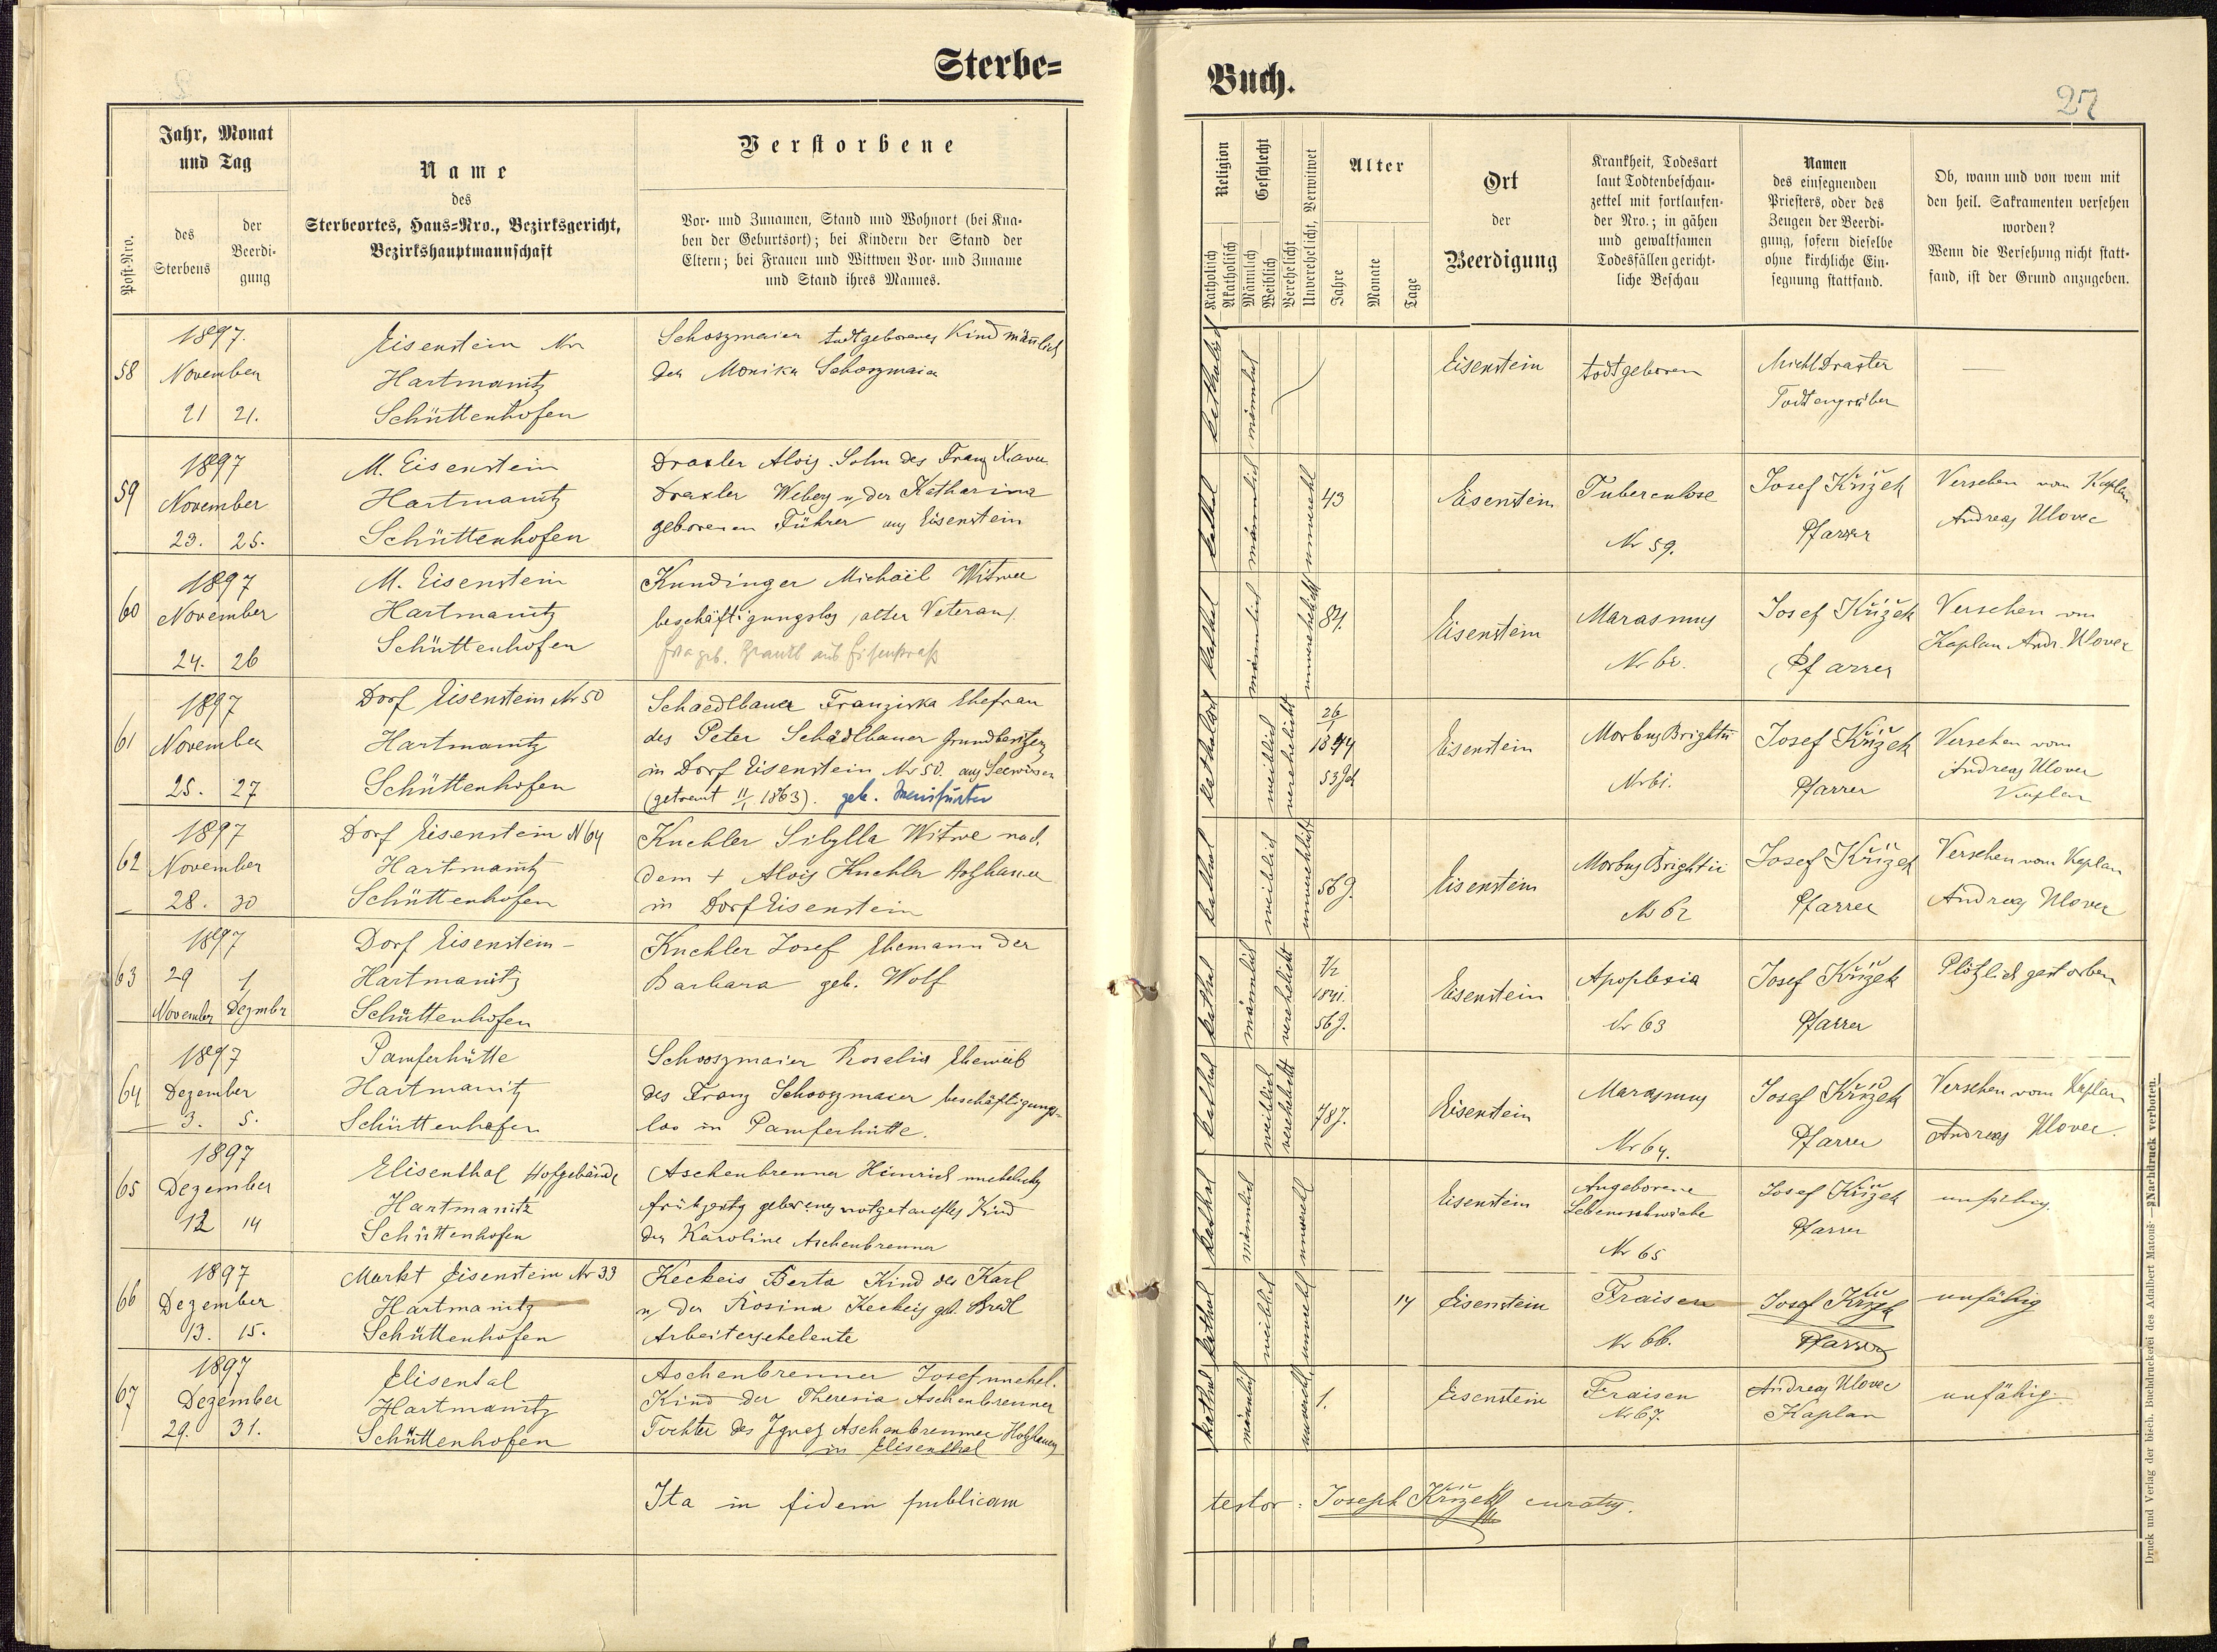 Sterbe=
Buch.
27
Post-Nro.
Jahr, Monat
und Tag
des
Sterbens
der
Beerdi-
gung
Name
des
Sterbeortes, Haus=Nro., Bezirksgericht,
Bezirkshauptmannschaft
Verstorbene
Vor- und Zunamen, Stand und Wohnort (bei Kna-
ben der Geburtsort); bei Kindern der Stand der
Eltern; bei Frauen und Wittwen Vor- und Zuname
und Stand ihres Mannes.
Religion
Katholisch
Akatholisch
Geschlecht
Männlich
Weiblich
Verehelicht
Unverehelicht, Verwitwet
Alter
Jahre
Monate
Tage
Ort
der
Beerdigung
Krankheit, Todesart
laut Todtenbeschau-
zettel mit fortlaufen-
der Nro.; in gähen
und gewaltsamen
Todesfällen gericht-
liche Beschau
Namen
des einsegnenden
Priesters, oder des
Zeugen der Beerdi-
gung, sofern dieselbe
ohne kirchliche Ein-
segnung stattfand.
Ob, wann und von wem mit
den heil. Sakramenten versehen
worden?
Wenn die Versehung nicht statt-
fand, ist der Grund anzugeben.
58
1897.
November
21 21.
Eisenstein Nr
Hartmanitz
Schüttenhofen
Schoszmaier todtgeborenes Kind männlich
der Monika Schoszmaier
katholisch
männlich
Eisenstein
todtgeboren
Michl Draxler
Todtengräber
—
59
1897
November
23. 25.
M. Eisenstein
Hartmanitz
Schüttenhofen
Draxler Alois Sohn des Franz Xaver
Draxler Webers u. der Katharina
geborenen Führer aus Eisenstein
kathol
männlich
unverehl
43
Eisenstein
Tuberculose
Nr 59.
Josef Křížek
Pfarrer
Versehen vom Kaplan
Andreas Ulovec
60
1897
November
24. 26
M. Eisenstein
Hartmanitz
Schüttenhofen
Kundinger Michael Witwer
beschäftigungslos, alter Veteran
kathol
männlich
unverehelicht
84.
Eisenstein
Marasmus
Nr 60.
Josef Křížek
Pfarrer
Versehen vom
Kaplan Andr. Ulovec
61
1897
November
25. 27
Dorf Eisenstein Nr 50
Hartmanitz
Schüttenhofen
Schaedlbauer Franziska Ehefrau
des Peter Schädlbauer Grundbesitzers
in Dorf Eisenstein Nr 50. aus Seewiesen
(getraut 11/1 1863). geb.
katholisch
weiblich
verehelicht
26/1
1844
53 J
Eisenstein
Morbus Brightii
Nr 61.
Josef Křížek
Pfarrer
Versehen vom
Andreas Ulovec
Kaplan
62
1897
November
28. 30
Dorf Eisenstein N 64
Hartmanitz
Schüttenhofen
Kuchler Sibylla Witwe nach
dem + Alois Kuchler Holzhauer
in Dorf Eisenstein
kathol
weiblich
unverehlicht
56 J.
Eisenstein
Morbus Brightii
Nr 62
Josef Křížek
Pfarrer
Versehen vom Kaplan
Andreas Ulovec
63
1897
29 1
November Dezember
Dorf Eisenstein -
Hartmanitz
Schüttenhofen
Kuchler Josef Ehemann der
Barbara geb. Wolf
kathol
männlich
verehelicht
1/2
1841.
56 J.
Eisenstein
Apoplexia
Nr 63
Josef Křížek
Pfarrer
Plötzlich gestorben
64
1897
Dezember
3. 5.
Pamferhütte
Hartmanitz
Schüttenhofen
Schooszmaier Rosalia Eheweib
des Franz Schooszmaier beschäftigungs-
los in Pamferhütte.
kathol
weiblich
verehelicht
78 J.
Eisenstein
Marasmus
Nr 64.
Josef Křížek
Pfarrer
Versehen vom Kaplan
Andreas Ulovec.
65
1897
Dezember
12 14
Elisenthal Hofgebäude
Hartmanitz
Schüttenhofen
Aschenbrenner Heinrich uneheliches
frühzeitig geborenes notgetauftes Kind
der Karoline Aschenbrenner
kathol
männlich
unverehl
Eisenstein
Angeborene
Lebensschwäche
Nr 65
Josef Křížek
Pfarrer
unfähig.
66
1897
Dezember
13. 15.
Markt Eisenstein Nr 33
Hartmanitz
Schüttenhofen
Keckeis Berta Kind des Karl
u. der Rosina Keckeis geb. Bredl
Arbeiterseheleute
kathol
weiblich
unverehl
14
Eisenstein
Fraisen
Nr 66.
Josef Křížek
Pfarrer
unfähig
67
1897
Dezember
29. 31.
Elisental
Hartmanitz
Schüttenhofen
Aschenbrenner Josef unehel.
Kind der Theresia Aschenbrenner
Tochter des Ignaz Aschenbrenner Holzhauers
in Elisenthal
kathol
männlich
unverehl
1.
Eisenstein
Fraisen
Nr 67.
Andreas Ulovec
Kaplan
unfähig.
Ita in fidem publicam
testor: Joseph Křížek curatus.
Druck und Verlag der bisch. Buchdruckerei des Adalbert Matouš. — Nachdruck verboten.